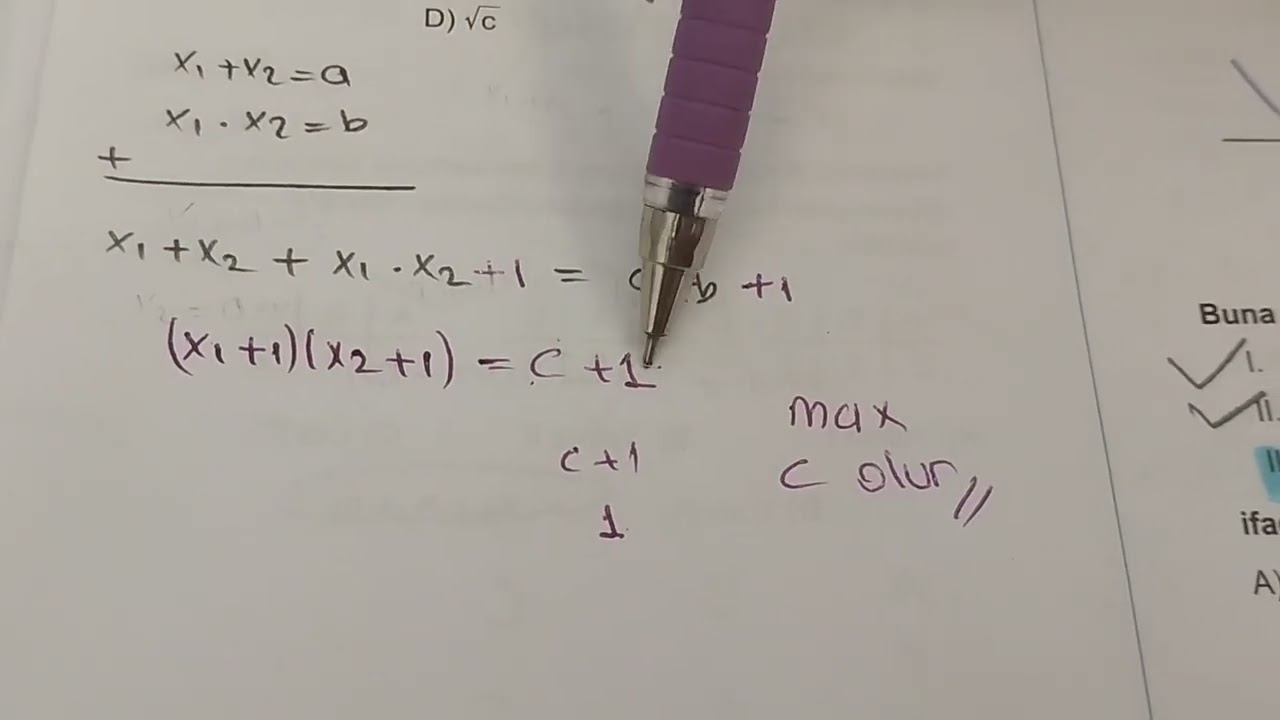 D) √c
x₁ + x₂ = a
x₁ . x₂ = b
+
x₁ + x₂ + x₁ . x₂ + 1 = b + 1
(x₁ + 1)(x₂ + 1) = c + 1
c + 1
1
max
c olur //
Buna
I.
II.
ifa
A)